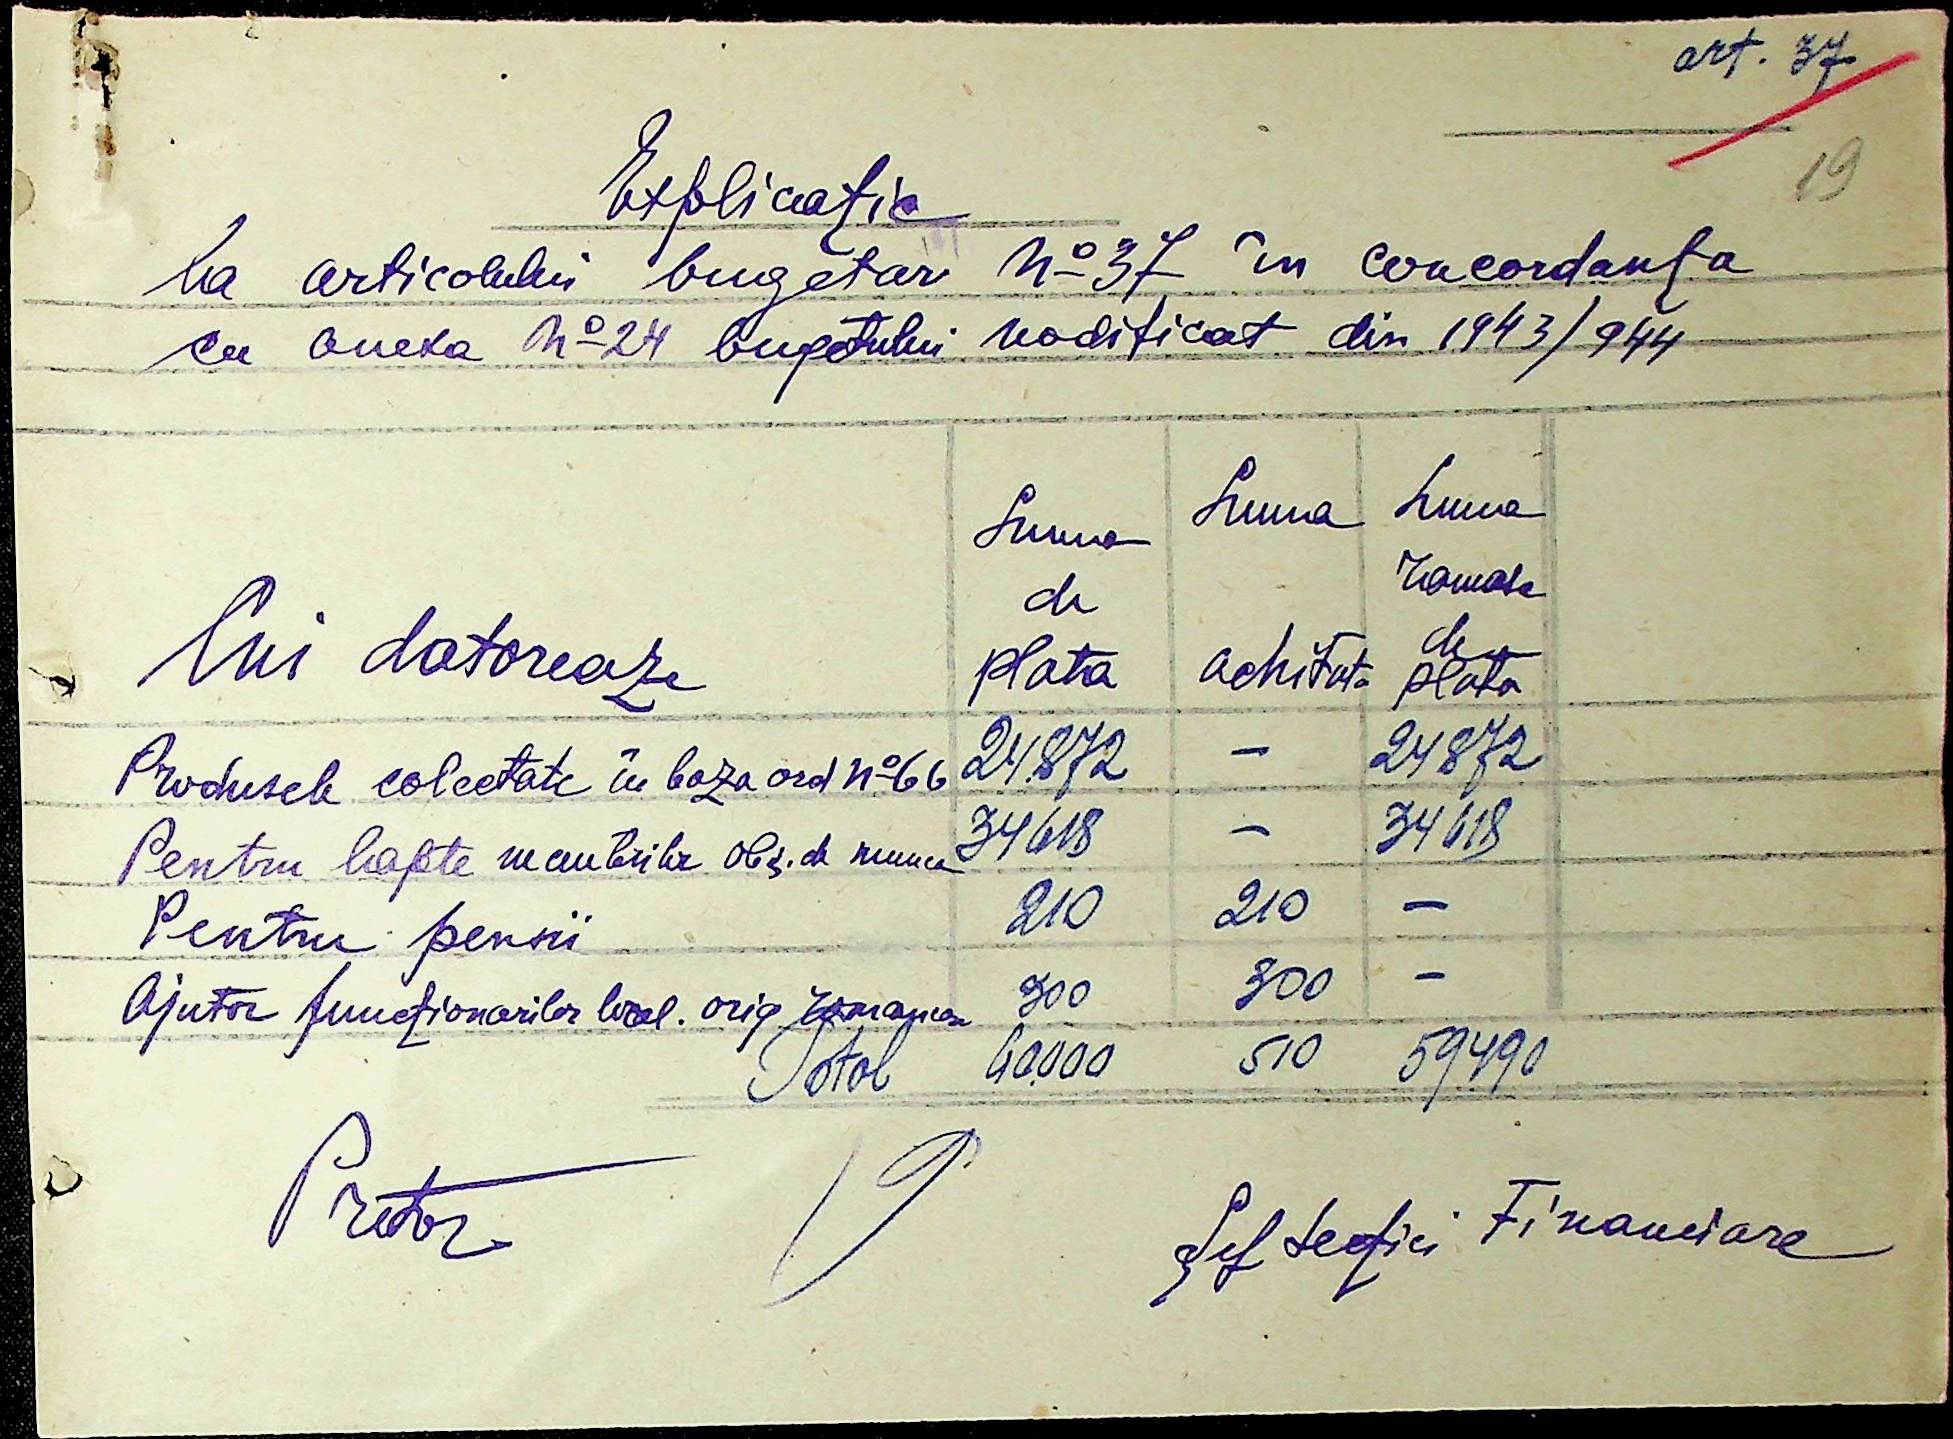 art. 37
19
Explicație
La articolului bugetar No 37 în concordanța
cu anexa No 24 bugetului modificat din 1943/944
Cui datoreaze
Suma de plata
Suma achitata
Suma ramasa de plata
Produsele colectate în baza ord No 66 24872 — 24872
Pentru lapte membrilor obș. de munca 34618 — 34618
Pentru pensii 210 210 —
Ajutor funcționarilor local. orig romaneni 300 300 —
Total 60.000 510 59490
Pretor
Șef Secției Financiare